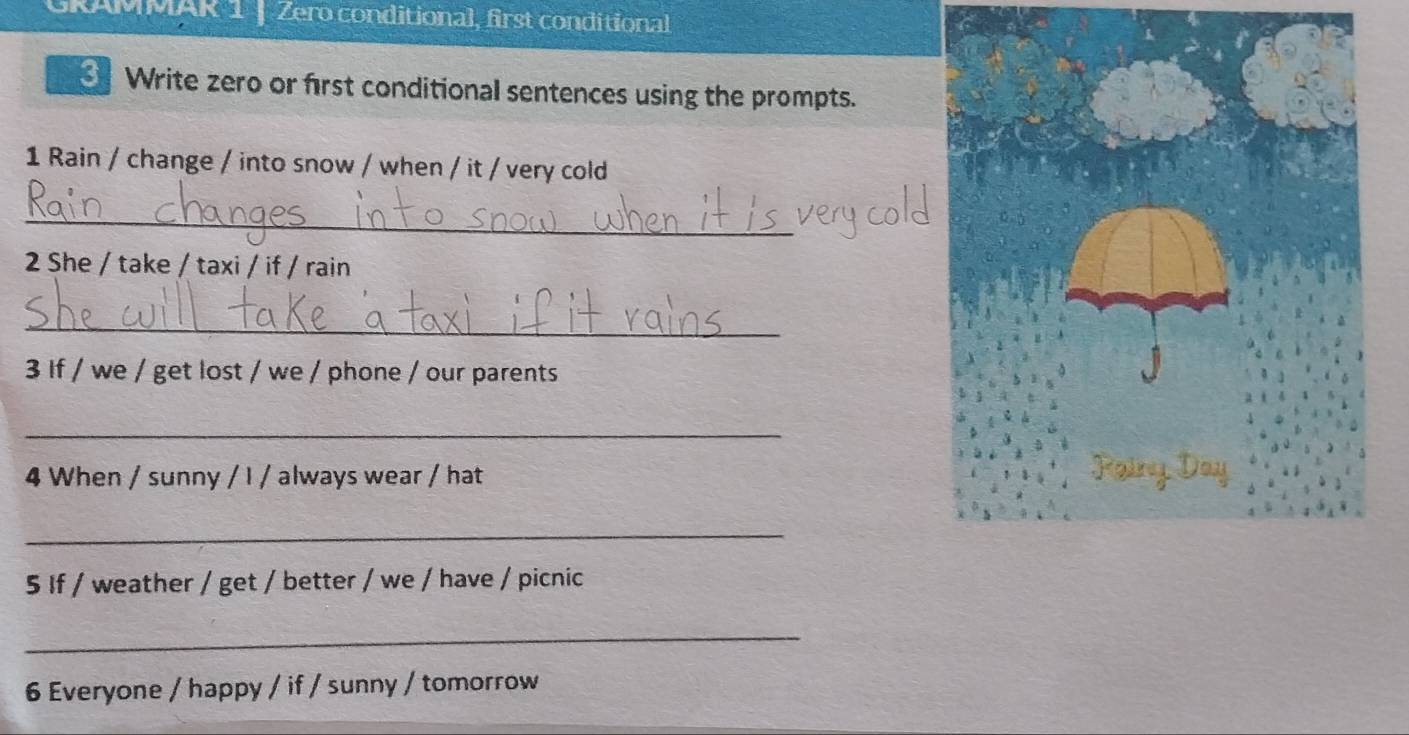 GRAMMAR 1 | Zero conditional, first conditional
3 Write zero or first conditional sentences using the prompts.
1 Rain / change / into snow / when / it / very cold
Rain changes into snow when it is very cold
2 She / take / taxi / if / rain
She will take a taxi if it rains
3 If / we / get lost / we / phone / our parents
4 When / sunny / I / always wear / hat
Rainy Day
5 If / weather / get / better / we / have / picnic
6 Everyone / happy / if / sunny / tomorrow